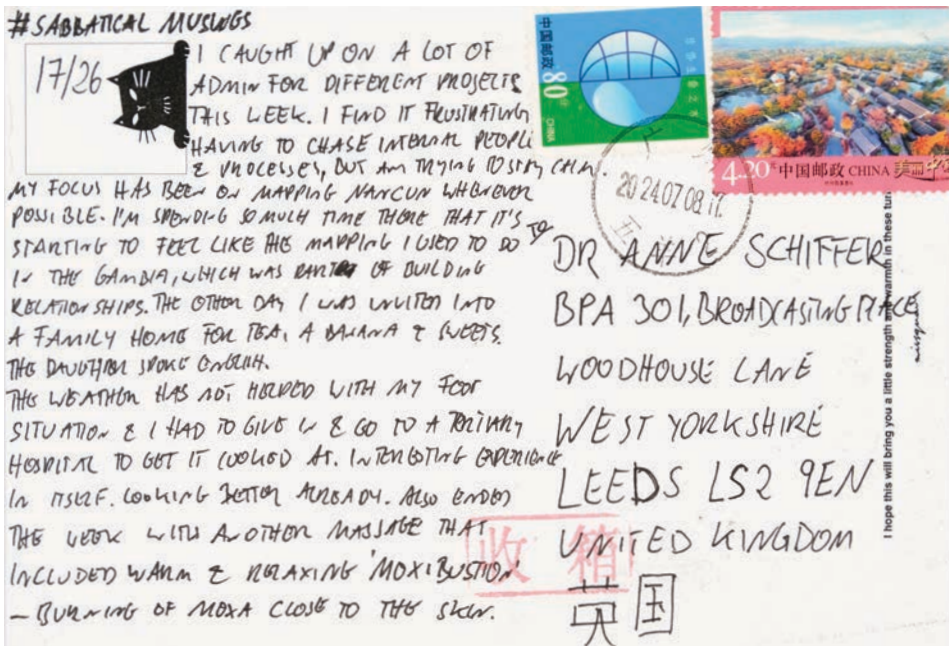 #SABBATICAL MUSINGS
17/26
I CAUGHT UP ON A LOT OF
ADMIN FOR DIFFERENT PROJECTS
THIS WEEK. I FIND IT FRUSTRATING
HAVING TO CHASE INTERNAL PEOPLE
& PROCESSES, BUT AM TRYING TO STAY CALM.
MY FOCUS HAS BEEN ON MAPPING NANCUN WHENEVER
POSSIBLE. I'M SPENDING SO MUCH TIME THERE THAT IT'S
STARTING TO FEEL LIKE THE MAPPING I USED TO DO
IN THE GAMBIA, WHICH WAS PART OF BUILDING
RELATIONSHIPS. THE OTHER DAY I WAS INVITED INTO
A FAMILY HOME FOR TEA, A BANANA & SWEETS.
THE DAUGHTER SPOKE ENGLISH.
THE WEATHER HAS NOT HELPED WITH MY FOOT
SITUATION & I HAD TO GIVE IN & GO TO A TERTIARY
HOSPITAL TO GET IT LOOKED AT. INTERESTING EXPERIENCE
IN ITSELF. LOOKING BETTER ALREADY. ALSO ENDED
THE WEEK WITH ANOTHER MASSAGE THAT
INCLUDED WARM & RELAXING 'MOXIBUSTION
– BURNING OF MOXA CLOSE TO THE SKIN.
中国邮政
80分
CHINA
4.20元 中国邮政 CHINA 美丽中
2024.07.08.17
五
TO
DR ANNE SCHIFFER
BPA 301, BROADCASTING PLACE
WOODHOUSE LANE
WEST YORKSHIRE
LEEDS LS2 9EN
UNITED KINGDOM
英国
收箱
I hope this will bring you a little strength and warmth in these